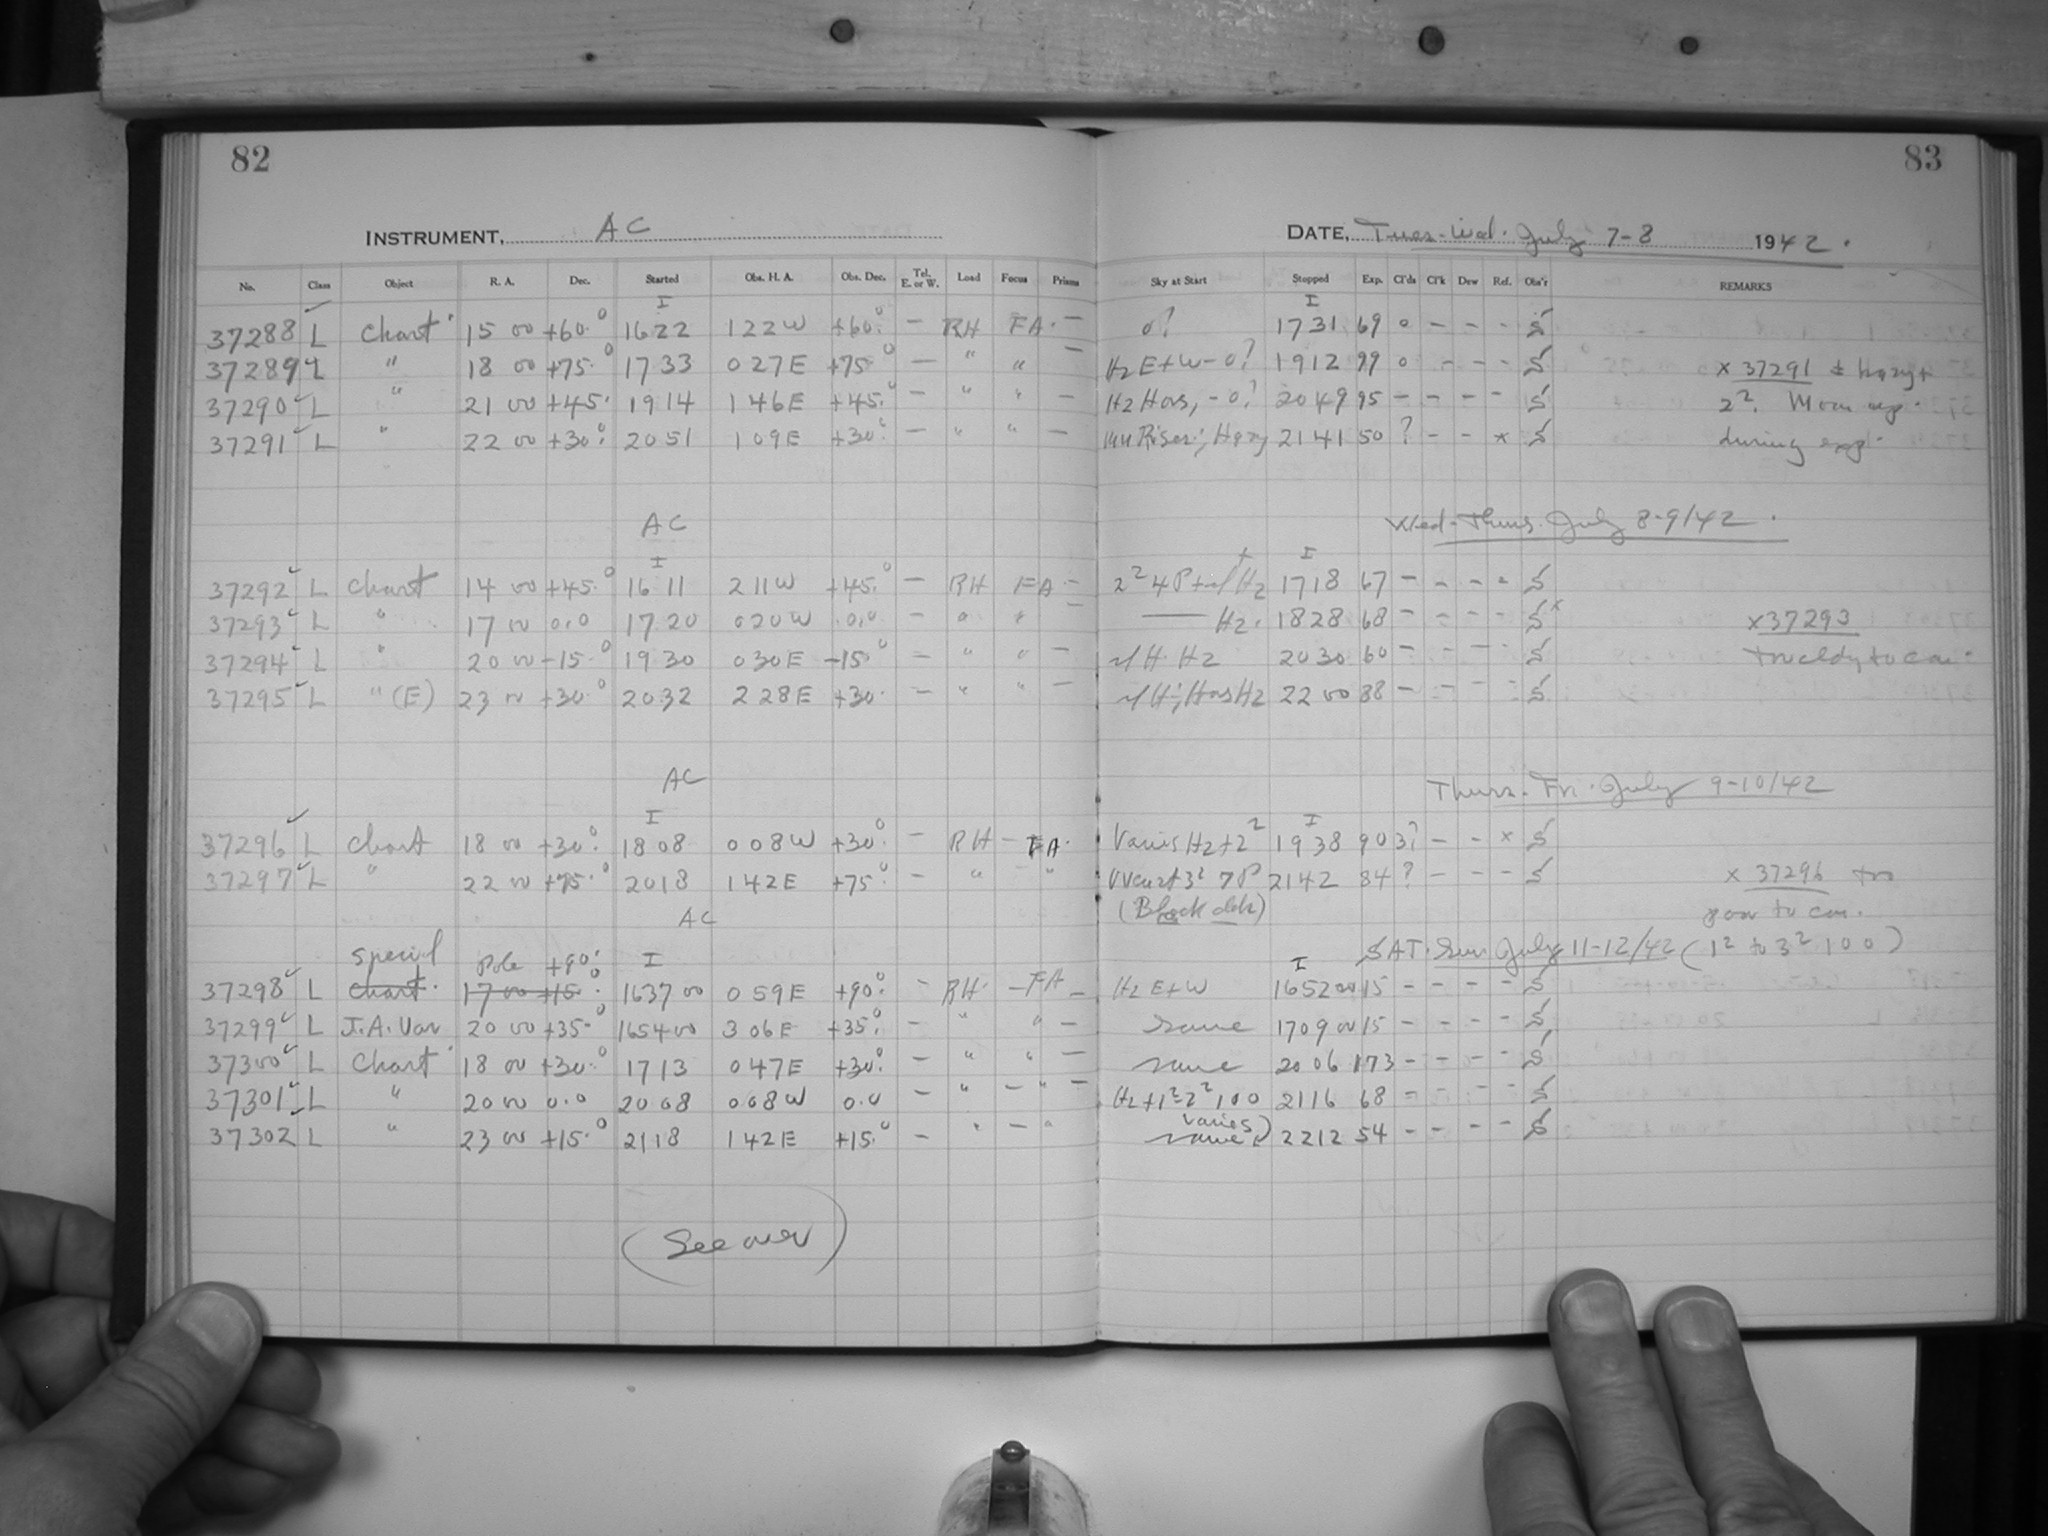 82
83
INSTRUMENT, AC
DATE, Tues-Wed. July 7-8 1942.
No. Class Object R. A. Dec. Started Obs. H. A. Obs. Dec. Tel. E. or W. Load Focus Prisms Sky at Start Stopped Exp. Cl'ds Cl'k Dew Ref. Obs'r REMARKS
I I
37288 L Chart 15 00 +60.° 1622 122W +60.° - RH FA. - 0? 1731 69 0 - - - S
37289 L " 18 00 +75.° 1733 027E +75° - " " - Hz E+W-0? 1912 99 0 - - - S x 37291 ± hazy+
37290 L " 21 00 +45. 1914 146E +45.° - " " - Hz Hors, -0? 2049 95 - - - - S 2². Moon up.
37291 L " 22 00 +30.° 2051 109E +30.° - " " - Rises; Hazy 2141 50 ? - - x S during exp.
AC Wed-Thurs. July 8-9/42.
I I
37292 L Chart 14 00 +45.° 1611 211W +45.° - RH FA - 2² 4P Hz 1718 67 - - - - S
37293 L " 17 00 0.0 1720 020W 0.0 - " " - Hz. 1828 68 - - - - S x x37293
37294 L " 20 00 -15.° 1930 030E -15.° - " " - Hz 2030 60 - - - - S
37295 L " (E) 23 00 +30.° 2032 228E +30. - " " - Hors Hz 2200 88 - - - - S
AC Thurs-Fri. July 9-10/42
I I
37296 L Chart 18 00 +30.° 1808 008W +30.° - RH - FA. Varies Hz+2² 1938 90 3? - - x S
37297 L " 22 00 +75.° 2018 142E +75.° - " " 3² 7P 2142 84 ? - - - S x 37296
(Black clds)
AC
SAT-Sun July 11-12/42 (1² to 3² 100)
special Pole +90.° I I
37298 L chart. 17 00 +15.° 1637 00 059E +90.° - RH. - FA - Hz E+W 1652 00 15 - - - - S
37299 L J.A. Var 20 00 +35.° 1654 00 306E +35.° - " " - same 1709 00 15 - - - - S
37300 L Chart 18 00 +30.° 1713 047E +30.° - " " - same 2006 173 - - - - S
37301 L " 20 00 0.0 2008 008W 0.0 - " - " - Hz+1²-2² 100 2116 68 - - - - S
varies
37302 L " 23 00 +15.° 2118 142E +15.° - " - " same 2212 54 - - - - S
(See over)